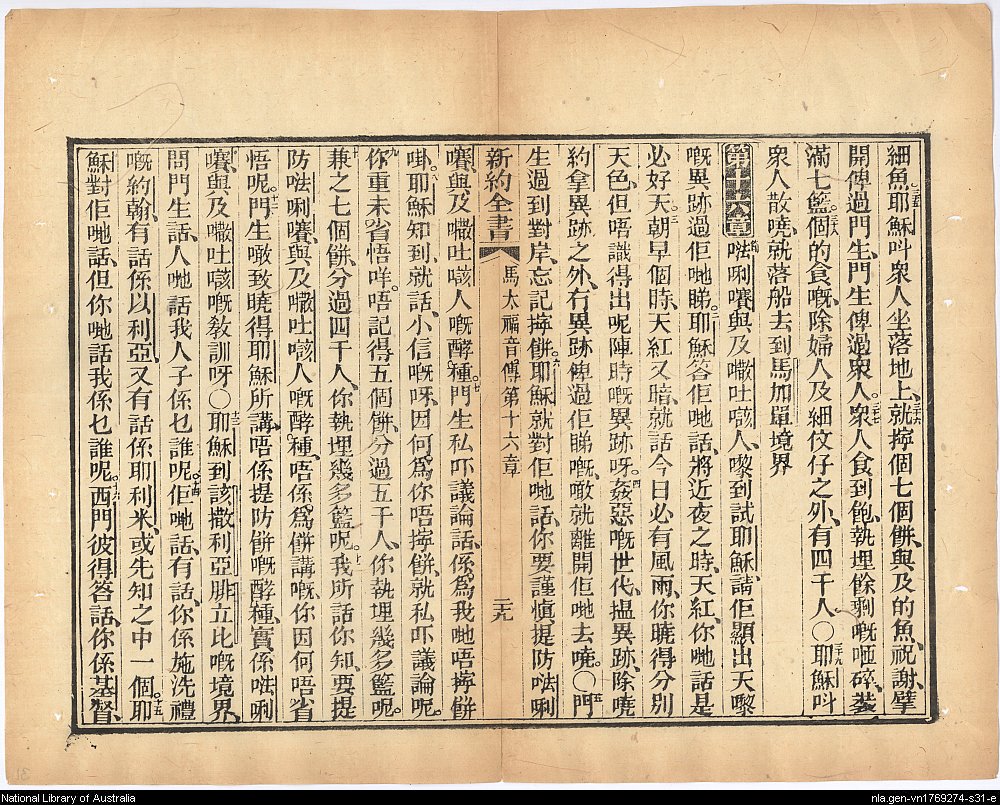 細魚、三十五耶穌呌衆人坐落地上、三十六就擰個七個餅、與及的魚、祝謝、擘
開俾過門生、門生俾過衆人。三十七衆人食到飽、執埋餘剩嘅啞碎、裝
滿七籃。三十八個的食嘅、除婦人及細蚊仔之外、有四千人〇三十九耶穌呌
衆人散曉、就落船去到馬加單境界
第十六章 一𠵽唎㘔與及㘔吐咳人、嚟到試耶穌、請佢顯出天嚟
嘅異跡過佢哋睇。二耶穌答佢哋話、將近夜之時、天紅、你哋話是
必好天。三朝早個時、天紅又暗、就話今日必有風雨、你曉得分別
天色、但唔識得出呢陣時嘅異跡呀。四姦惡嘅世代、揾異跡、除曉
約拿異跡之外、冇異跡俾過佢睇嘅、噉就離開佢哋去曉。〇五門
生過到對岸、忘記擰餅。六耶穌就對佢哋話、你要謹愼提防𠵽唎
新約全書 馬太福音傳第十六章 二十九
㘔、與及㘔吐咳人嘅酵種。七門生私吓議論話、係爲我哋唔擰餅
啩。八耶穌知到、就話、小信嘅呀、因何爲你唔擰餅、就私吓議論呢。
九你重未省悟咩。唔記得五個餅、分過五千人、你執埋幾多籃呢。
十兼之七個餅、分過四千人、你執埋幾多籃呢。十一我所話你知、要提
防𠵽唎㘔、與及㘔吐咳人嘅酵種、唔係爲餅講嘅、你因何唔省
悟呢。十二門生噉致曉得耶穌所講、唔係提防餅嘅酵種、實係𠵽唎
㘔、與及㘔吐咳嘅教訓呀〇十三耶穌到該撒利亞腓立比嘅境界、
問門生話、人哋話我人子係乜誰呢。十四佢哋話、有話你係施洗禮
嘅約翰、有話係以利亞、又有話係耶利米、或先知之中一個。十五耶
穌對佢哋話、但你哋話我係乜誰呢。十六西門彼得答話、你係基督、
National Library of Australia
nla.gen-vn1769274-s31-e